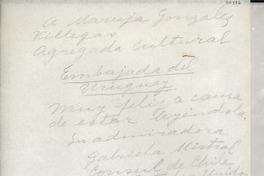 A Maruja Gonzalez
Villegas
Agregada Cultural
Embajada del
Uruguay
Muy feliz a causa
de estar leyéndola.
Su admiradora
Gabriela Mistral
Consul de Chile